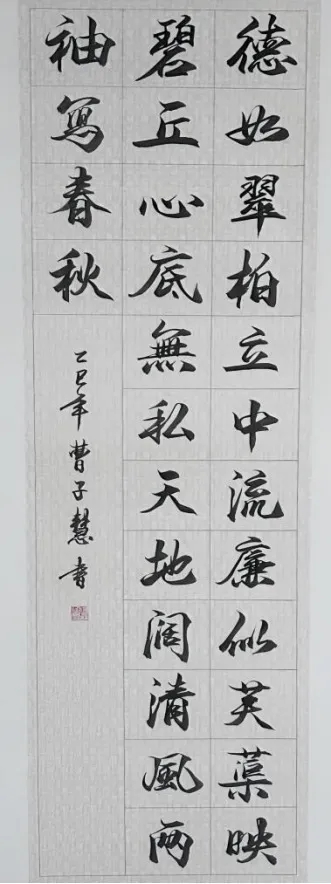 德如翠柏立中流廉似芙蕖映
碧丘心底無私天地阔清風两
袖寫春秋
乙巳年曹子慧書